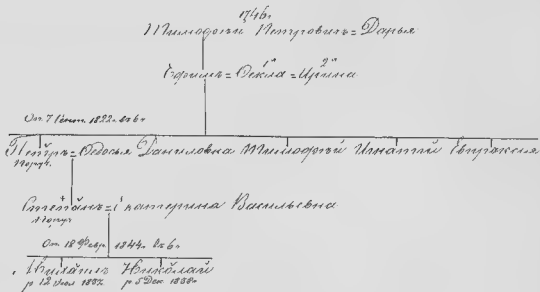 1746г
Тимофѣй Петровичъ = Дарья
1я 2я
Ефимъ = Ѳекла = Ирина
От 7 Сент. 1822 г. въ 6ч
Петръ = Ѳедосья Даниловна Тимофѣй Игнатій Евпраксія
Поруч.
Степанъ = Екатерина Васильевна
Поруч
От 18 Февр. 1844 г. въ 6ч
Михаилъ Николай
р 12 1837 р 5 Дек 1838г